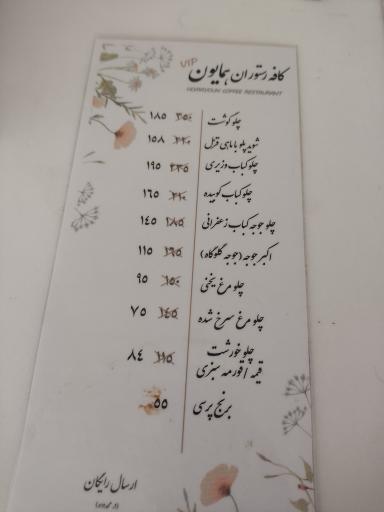 کافه رستوران همایون
VIP
HOMAYOUN COFFEE RESTAURANT
چلو گوشت ۲۵۰ ۱۸۵
شوید پلو با ماهی قزل ۲۲۰ ۱۵۸
چلو کباب وزیری ۲۳۵ ۱۹۵
چلو کباب کوبیده ۲۲۰ ۱۶۵
چلو جوجه کباب زعفرانی ۱۸۵ ۱۴۵
اکبر جوجه (جوجه گلوگاه) ۱۶۵ ۱۱۵
چلو مرغ یخنی ۱۵۰ ۹۵
چلو مرغ سرخ شده ۱۴۵ ۷۵
چلو خورشت
قیمه / قورمه سبزی ۱۱۵ ۸۴
برنج پرسی ۵۵
ارسال رایگان